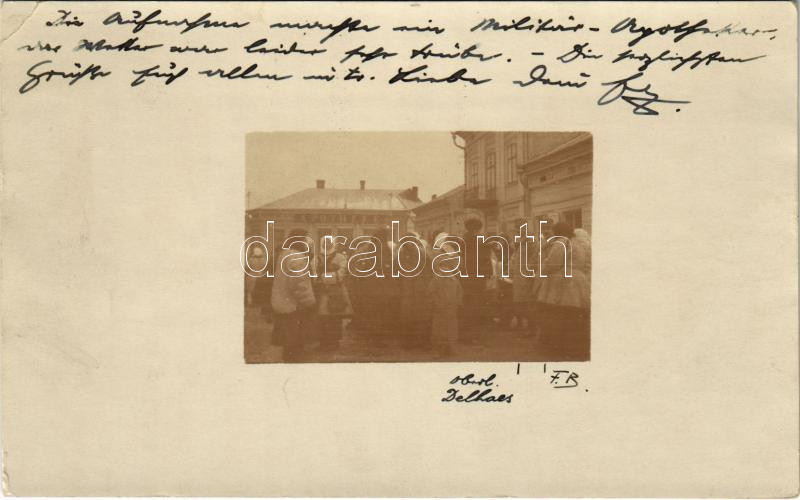 Die Aufnahme machte ein Militär-Apotheker,
das Wetter war leider sehr trübe. - Die herzlichsten
Grüße Euch allen u in Liebe Dein
darabanth
Oberl. F.B.
Delhaes